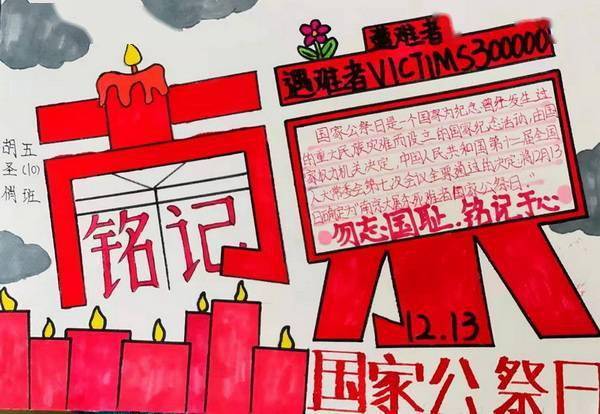 五(10)班
胡圣俏
难者
遇难者VICTIMS300000
国家公祭日是一个国家为纪念曾经发生过
的重大民族灾难而设立的国家纪念活动,由国
家权力机关决定。中国人民共和国第十二届全国
人大常委会第七次会议全票通过的决定将12月13
日确定为"南京大屠杀死难者国家公祭日。"
勿忘国耻.铭记于心
铭记
12.13
国家公祭日